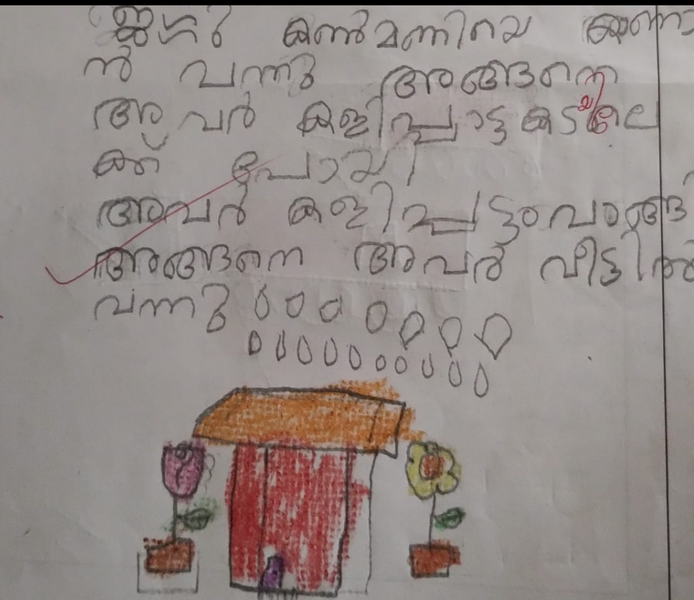 ജഗു കൺമണിയെ കാണാ
ൻ വന്നു അങ്ങനെ
അവർ കളിപ്പാട്ടകടയിലെ
ക്ക് പോയി
അവർ കളിപ്പട്ടം വാങ്ങി
അങ്ങനെ അവർ വീട്ടിൽ
വന്നു